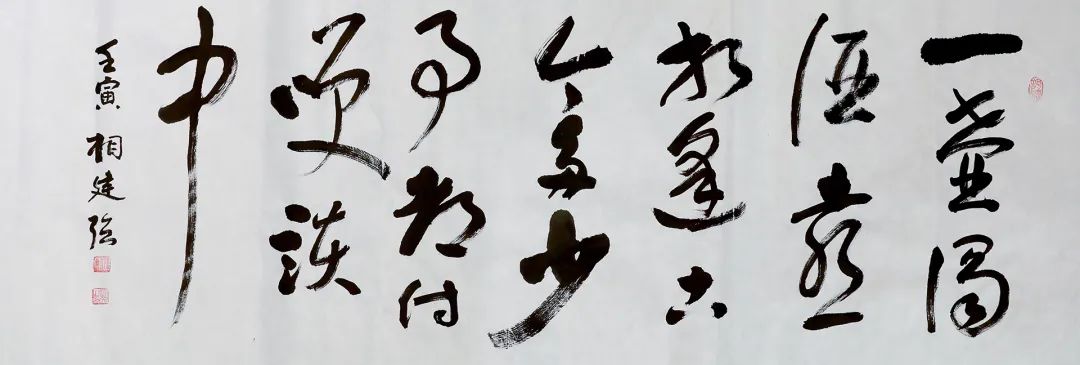 一壺濁
酒喜
相逢古
今多少
事都付
笑談
中
壬寅 相建强